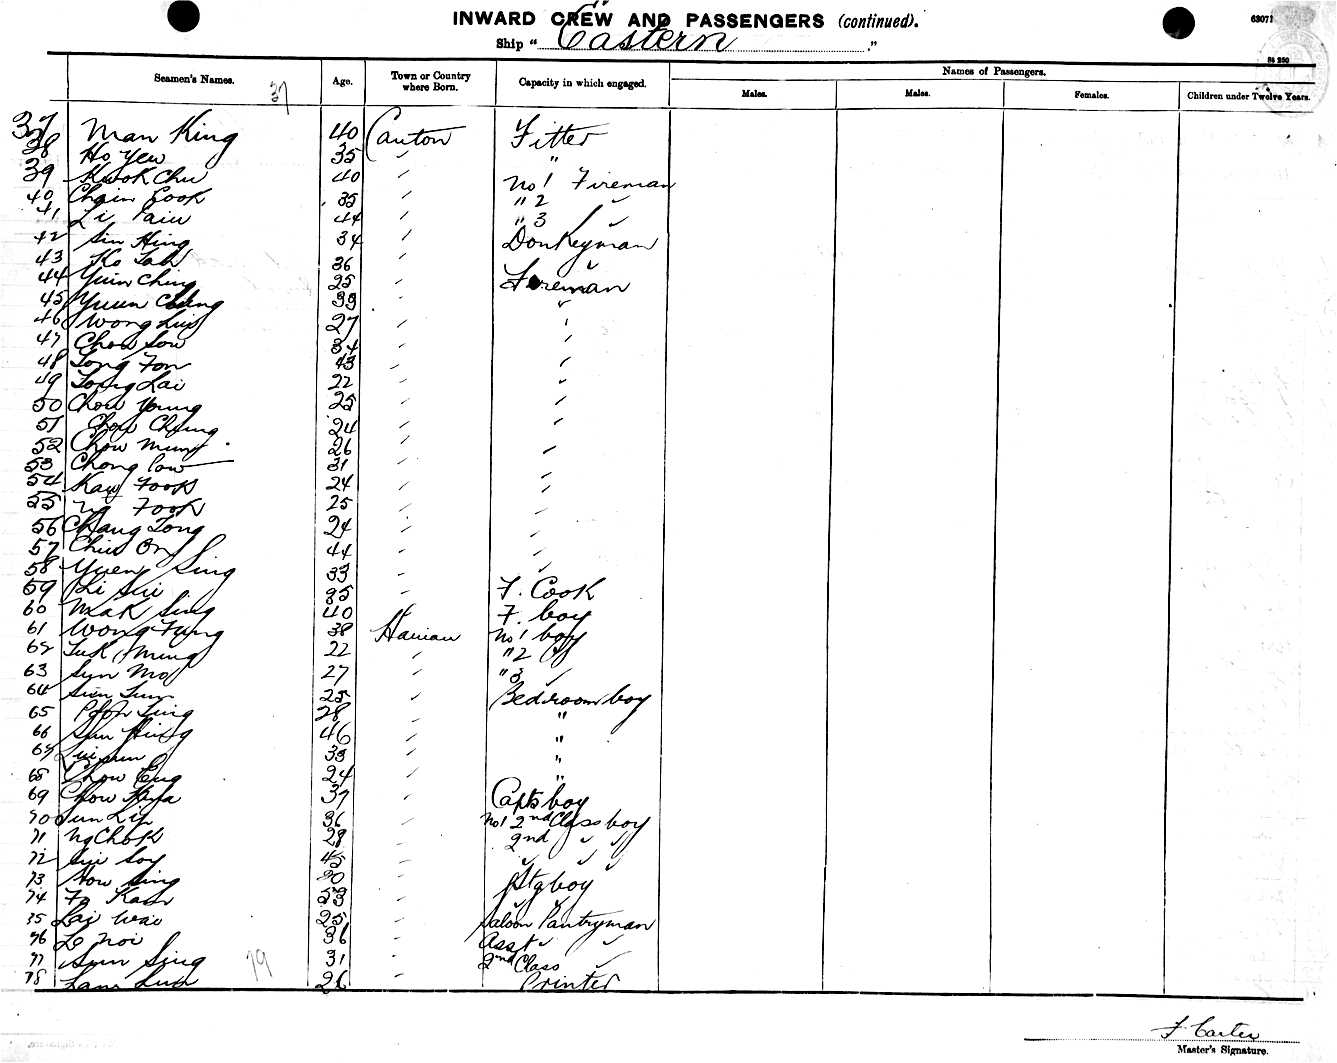 63071
INWARD CREW AND PASSENGERS (continued).
Ship " Eastern ."
Seamen's Names. Age. Town or Country where Born. Capacity in which engaged. Names of Passengers.
Males. Males. Females. Children under Twelve Years.
37
37 Man King 40 Canton Fitter
38 Ho Yew 35 " "
39 Kwok Chu 40 " No 1 Fireman
40 Chain Cook 35 " " 2 "
41 Li 44 " " 3 "
42 Sin Hing 34 " Donkeyman
43 Ko Tah 36 " "
44 Yuen Ching 25 " Fireman
45 Yuen Chung 39 " "
46 Wong 27 " "
47 Chow Sow 34 " "
48 Tong Fon 43 " "
49 Tong Lai 22 " "
50 Chow Young 25 " "
51 Chow Chung 24 " "
52 Chow Mung 26 " "
53 Chong Cow 31 " "
54 Kay Fook 24 " "
55 Ng Fook 25 " "
56 Chang Tong 24 " "
57 Chiu On 44 " "
58 Yuen Sing 33 " "
59 Li Sui 35 " F. Cook
60 Mak Sing 40 " F. boy
61 Wong Fung 38 Hainan No 1 boy
62 Tuk Ming 22 " " 2 "
63 Syn Mo 27 " " 3 "
64 25 " Bedroom boy
65 Poon Sing 28 " "
66 Sun Hing 46 " "
67 33 " "
68 Chow Eng 24 " "
69 Chow 37 " Capts boy
70 Sun Lip 36 " No 1 2nd Class boy
71 Ng Chok 28 " 2nd " "
72 Sui Soy 45 " " " "
73 How Sing 20 " boy
74 Fo Kam 53 " "
75 Lai Wai 25 " Saloon Pantryman
76 Lo Noi 36 " Asst " "
77 Sun Sing 31 " 2nd Class "
78 Lam Lun 26 " Printer
79
F. Carter
Master's Signature.